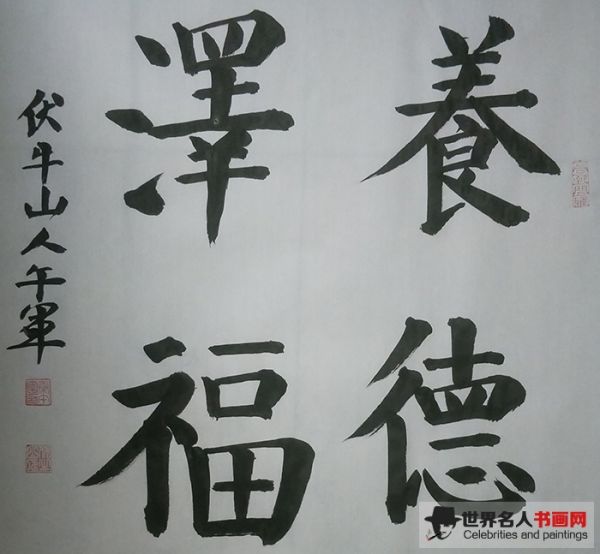 養德
澤福
伏牛山人午軍
世界名人书画网
Celebrities and paintings